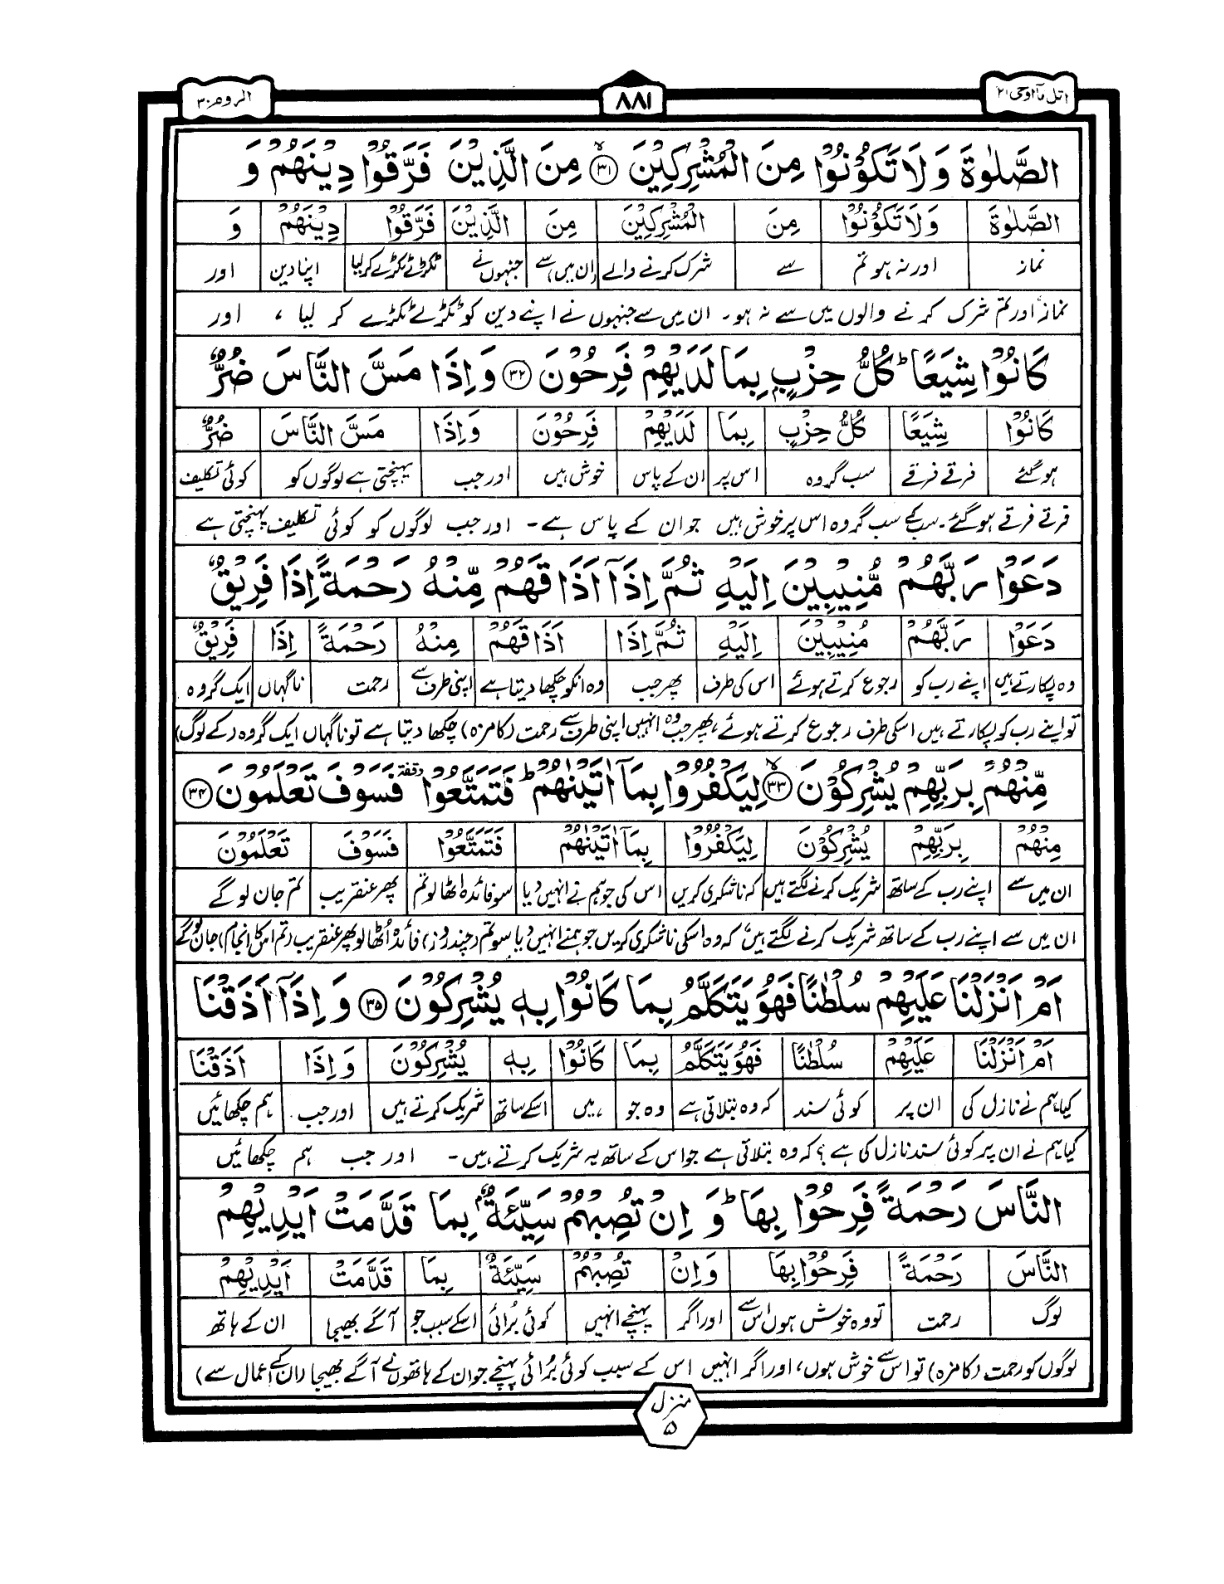 اتل مآ اوحی ۲۱ ۸۸۱ الروم ۳۰
الصَّلٰوةَ وَلَا تَكُوْنُوْا مِنَ الْمُشْرِكِيْنَ ﴿۳۱﴾ مِنَ الَّذِيْنَ فَرَّقُوْا دِيْنَهُمْ وَ
الصَّلٰوةَ وَلَا تَكُوْنُوْا مِنَ الْمُشْرِكِيْنَ مِنَ الَّذِيْنَ فَرَّقُوْا دِيْنَهُمْ وَ
نماز اور نہ ہو تم سے شرک کرنے والے (ان میں) سے جنہوں نے ٹکڑے ٹکڑے کر لیا اپنا دین اور
نماز اور تم شرک کرنے والوں میں سے نہ ہو۔ ان میں سے جنہوں نے اپنے دین کو ٹکڑے ٹکڑے کر لیا ، اور
كَانُوْا شِيَعًا ؕ كُلُّ حِزْبٍۭ بِمَا لَدَيْهِمْ فَرِحُوْنَ ﴿۳۲﴾ وَاِذَا مَسَّ النَّاسَ ضُرٌّ
كَانُوْا شِيَعًا كُلُّ حِزْبٍ بِمَا لَدَيْهِمْ فَرِحُوْنَ وَاِذَا مَسَّ النَّاسَ ضُرٌّ
ہو گئے فرقے فرقے سب گروہ اس پر ان کے پاس خوش ہیں اور جب پہنچتی ہے لوگوں کو کوئی تکلیف
فرقے فرقے ہو گئے۔ سب کے سب گروہ اس پر خوش ہیں جو ان کے پاس ہے۔ اور جب لوگوں کو کوئی تکلیف پہنچتی ہے
دَعَوْا رَبَّهُمْ مُّنِيْبِيْنَ اِلَيْهِ ثُمَّ اِذَاۤ اَذَاقَهُمْ مِّنْهُ رَحْمَةً اِذَا فَرِيْقٌ
دَعَوْا رَبَّهُمْ مُنِيْبِيْنَ اِلَيْهِ ثُمَّ اِذَا اَذَاقَهُمْ مِنْهُ رَحْمَةً اِذَا فَرِيْقٌ
وہ پکارتے ہیں اپنے رب کو رجوع کرتے ہوئے اس کی طرف پھر جب وہ انکو چکھا دیتا ہے اپنی طرف سے رحمت ناگہاں ایک گروہ
تو اپنے رب کو پکارتے ہیں اسکی طرف رجوع کرتے ہوئے، پھر جب وہ انہیں اپنی طرف سے رحمت (کا مزہ) چکھا دیتا ہے تو ناگہاں ایک گروہ (کے لوگ)
مِّنْهُمْ بِرَبِّهِمْ يُشْرِكُوْنَ ﴿۳۳﴾ لِيَكْفُرُوْا بِمَاۤ اٰتَيْنٰهُمْ ؕ فَتَمَتَّعُوْا وقفة فَسَوْفَ تَعْلَمُوْنَ ﴿۳۴﴾
مِنْهُمْ بِرَبِّهِمْ يُشْرِكُوْنَ لِيَكْفُرُوْا بِمَاۤ اٰتَيْنٰهُمْ فَتَمَتَّعُوْا فَسَوْفَ تَعْلَمُوْنَ
ان میں سے اپنے رب کے ساتھ شریک کرنے لگتے ہیں کہ ناشکری کریں اس کی جو ہم نے انہیں دیا سو فائدہ اٹھا لو تم پھر عنقریب تم جان لو گے
ان میں سے اپنے رب کے ساتھ شریک کرنے لگتے ہیں کہ وہ اسکی ناشکری کریں جو ہمنے انہیں دیا سو تم (چند روز) فائدہ اٹھا لو پھر عنقریب (تم اس کا انجام) جان لو گے
اَمْ اَنْزَلْنَا عَلَيْهِمْ سُلْطٰنًا فَهُوَ يَتَكَلَّمُ بِمَا كَانُوْا بِهٖ يُشْرِكُوْنَ ﴿۳۵﴾ وَاِذَاۤ اَذَقْنَا
اَمْ اَنْزَلْنَا عَلَيْهِمْ سُلْطٰنًا فَهُوَ يَتَكَلَّمُ بِمَا كَانُوْا بِهٖ يُشْرِكُوْنَ وَاِذَا اَذَقْنَا
کیا ہم نے نازل کی ان پر کوئی سند کہ وہ بتلاتی ہے وہ جو ہیں اسکے ساتھ شریک کرتے ہیں اور جب ہم چکھائیں
کیا ہم نے ان پر کوئی سند نازل کی ہے ؟ کہ وہ بتلاتی ہے جو اس کے ساتھ یہ شریک کرتے ہیں۔ اور جب ہم چکھائیں
النَّاسَ رَحْمَةً فَرِحُوْا بِهَا ؕ وَ اِنْ تُصِبْهُمْ سَيِّئَةٌۢ بِمَا قَدَّمَتْ اَيْدِيْهِمْ
النَّاسَ رَحْمَةً فَرِحُوْا بِهَا وَاِنْ تُصِبْهُمْ سَيِّئَةٌ بِمَا قَدَّمَتْ اَيْدِيْهِمْ
لوگ رحمت تو وہ خوش ہوں اس سے اور اگر پہنچے انہیں کوئی برائی اسکے سبب جو آگے بھیجا ان کے ہاتھ
لوگوں کو رحمت (کا مزہ) تو اس سے خوش ہوں، اور اگر انہیں اس کے سبب کوئی برائی پہنچے جو ان کے ہاتھوں نے آگے بھیجا (ان کے اعمال سے)
منزل
۵